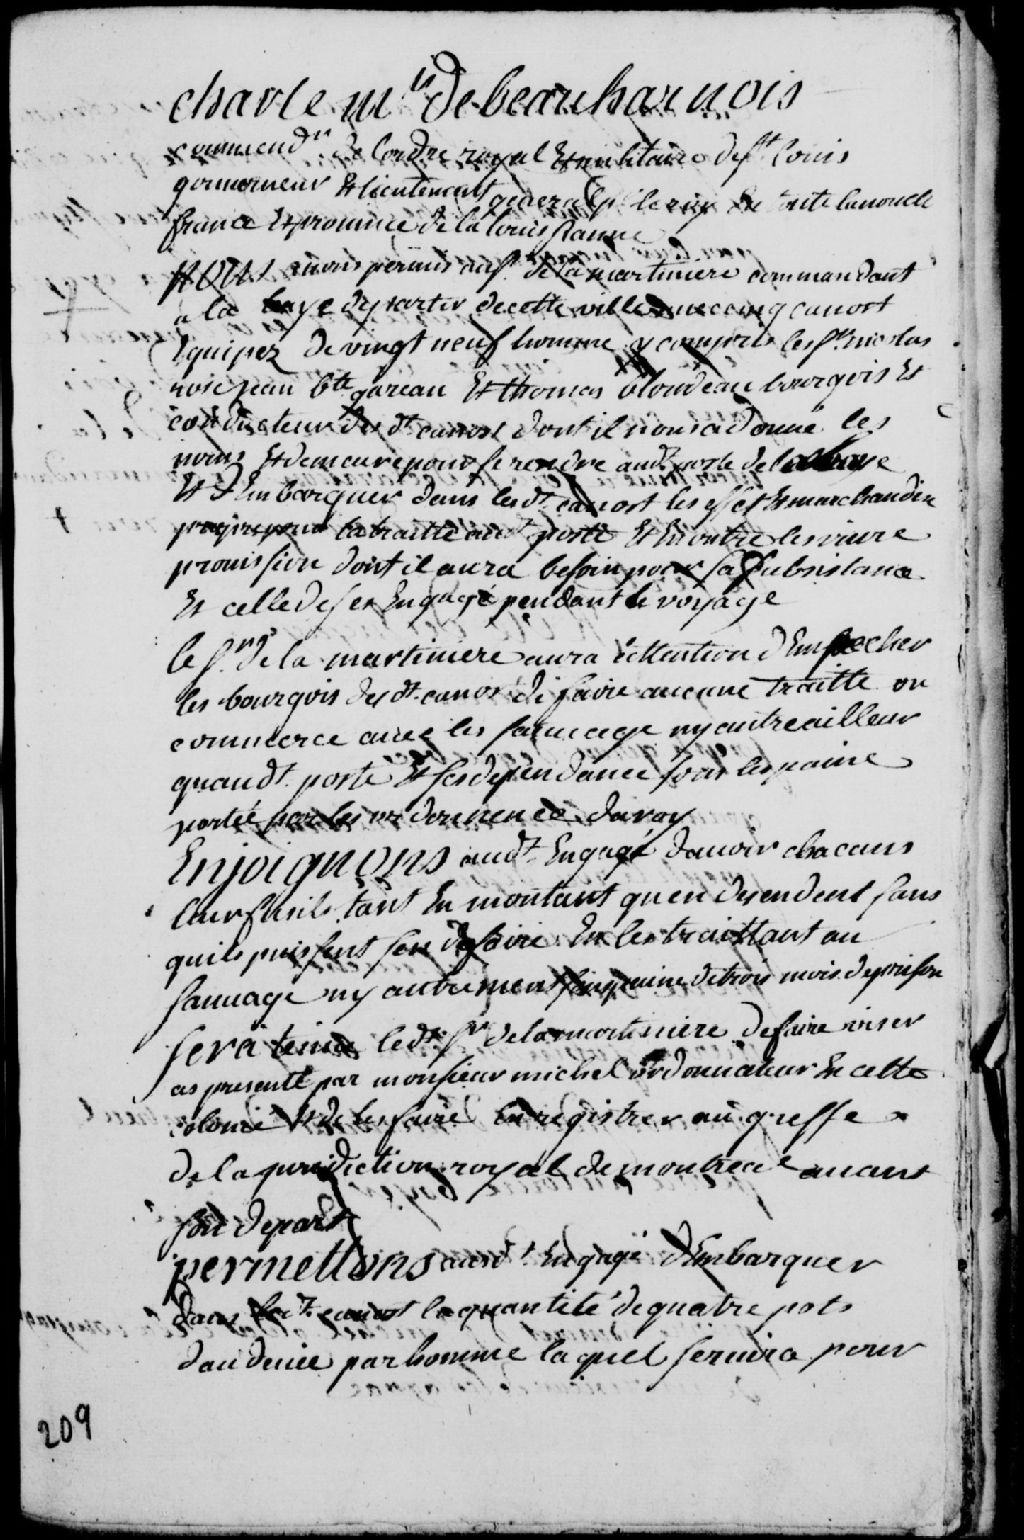 charle mis de beauharnois
commendr de lordre royal Et militaire de st louis
gouverneur Et lieutenant general pr le roy En toute lanouelle
france Et province de la louissianne
Nous avons permis au sr de la martiniere commandant
a la baye de partir de cette ville avec cinq canost
Equipez de vingt neuf homme y compris les srs nicolas
rose jean bte gareau Et thomas blondeau bourgois Et
conducteur desdt canost dont il nous a donné les
noms Et demeure pour se rendre audt poste de la baye
Et dEmbarquer dans lesdt canost les effet Et marchandise
propre pour la traitte audt poste Et En outre les vivre
provission dont il aura besoin pour sa subsistance
Et celle de ses Engagé pendant le voyage
le sr de la martiniere aura attention dEmpecher
les bourgois desdt canost de faire aucune traitte ou
commerce avec les sauvage ny autre ailleur
quaudt poste Et ses dependance sous les paine
porté par les ordonnence du roy
Enjoignons audt Engagé davoir chacuns
leur fusils tant En montant quen desendent sans
quils puissent sen defaire En les traittant au
sauvage ny autrement sous paine de trois mois de prison
sera tenue ledt sr de la martiniere de faire viser
as presente par monsieur michel ordonnateur En cette
colonie Et de les faire Enregistrer au greffe
de la juridiction royal de montreal avant
son depart
permettons ausdt Engagé dEmbarquer
dans lesdt canost la quantité de quatre pots
daudevie par homme laquel servira pour
209